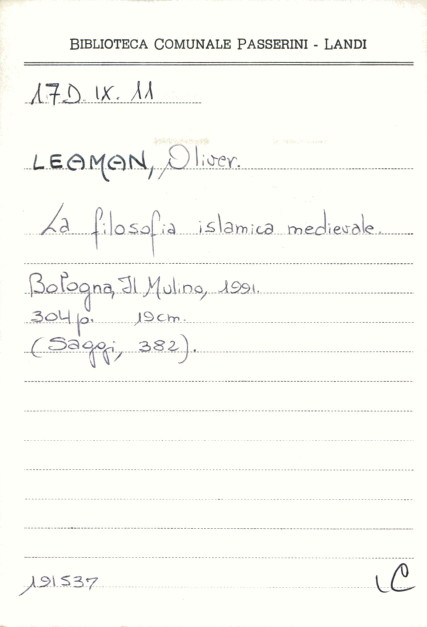 BIBLIOTECA COMUNALE PASSERINI - LANDI
17D. IX. 11
LEAMAN, Oliver.
La filosofia islamica medievale.
Bologna, Il Mulino, 1991.
304 p. 19 cm.
(Saggi, 382).
191537